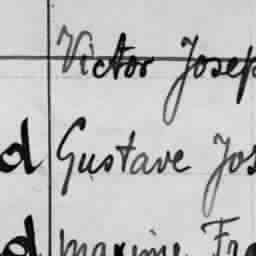 Victor Josep
d Gustave Jos
d Maxime Fra